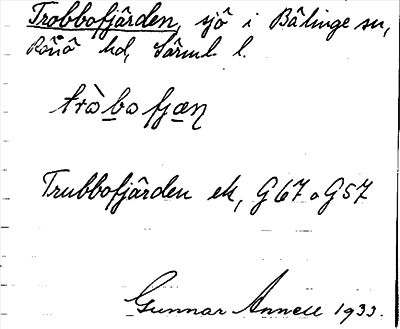 Trobbofjärden, sjö i Bälinge sn,
Rönö hd, Sörml. l.
tràbofjæɳ
Trubbofjärden ek, G67 o G57
Gunnar Annell 1933.